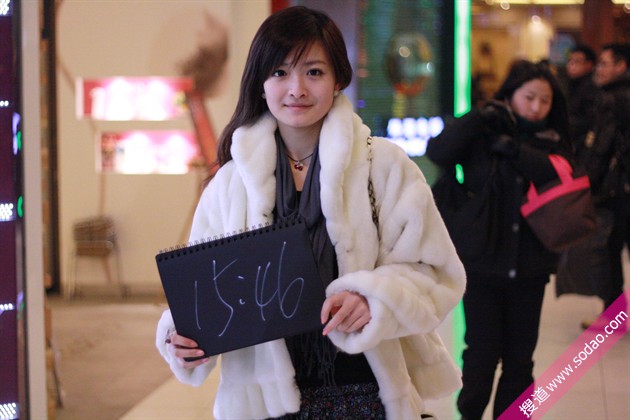 15:46
搜道 www.sodao.com